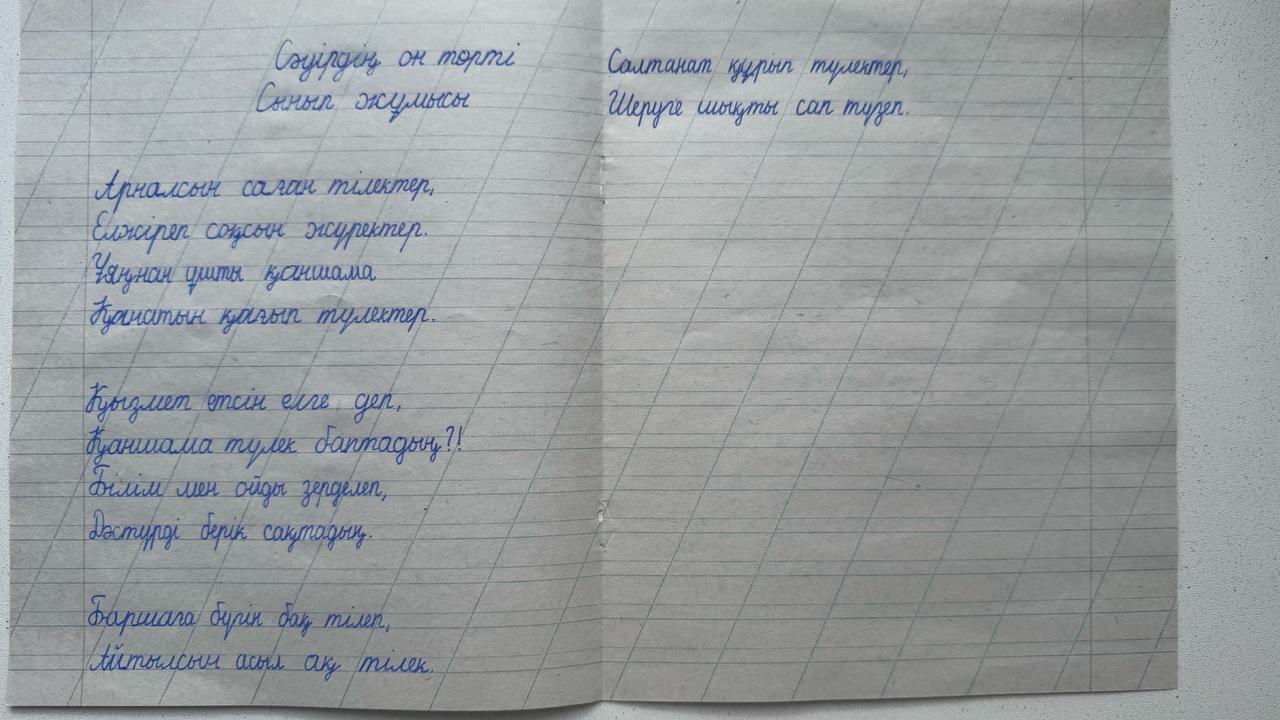 Сәуірдің он төрті
Сынып жұмысы
Арналсын саған тілектер,
Елжіреп соқсын жүректер.
Ұяңнан ұшты қаншама
Қанатын қағып түлектер.
Қызмет етсін елге деп,
Қаншама түлек баптадың?!
Білім мен ойды зерделеп,
Дәстүрді берік сақтадың.
Баршаға бүгін бақ тілеп,
Айтылсын асыл ақ тілек.
Салтанат құрып түлектер,
Шеруге шықты сап түзеп.